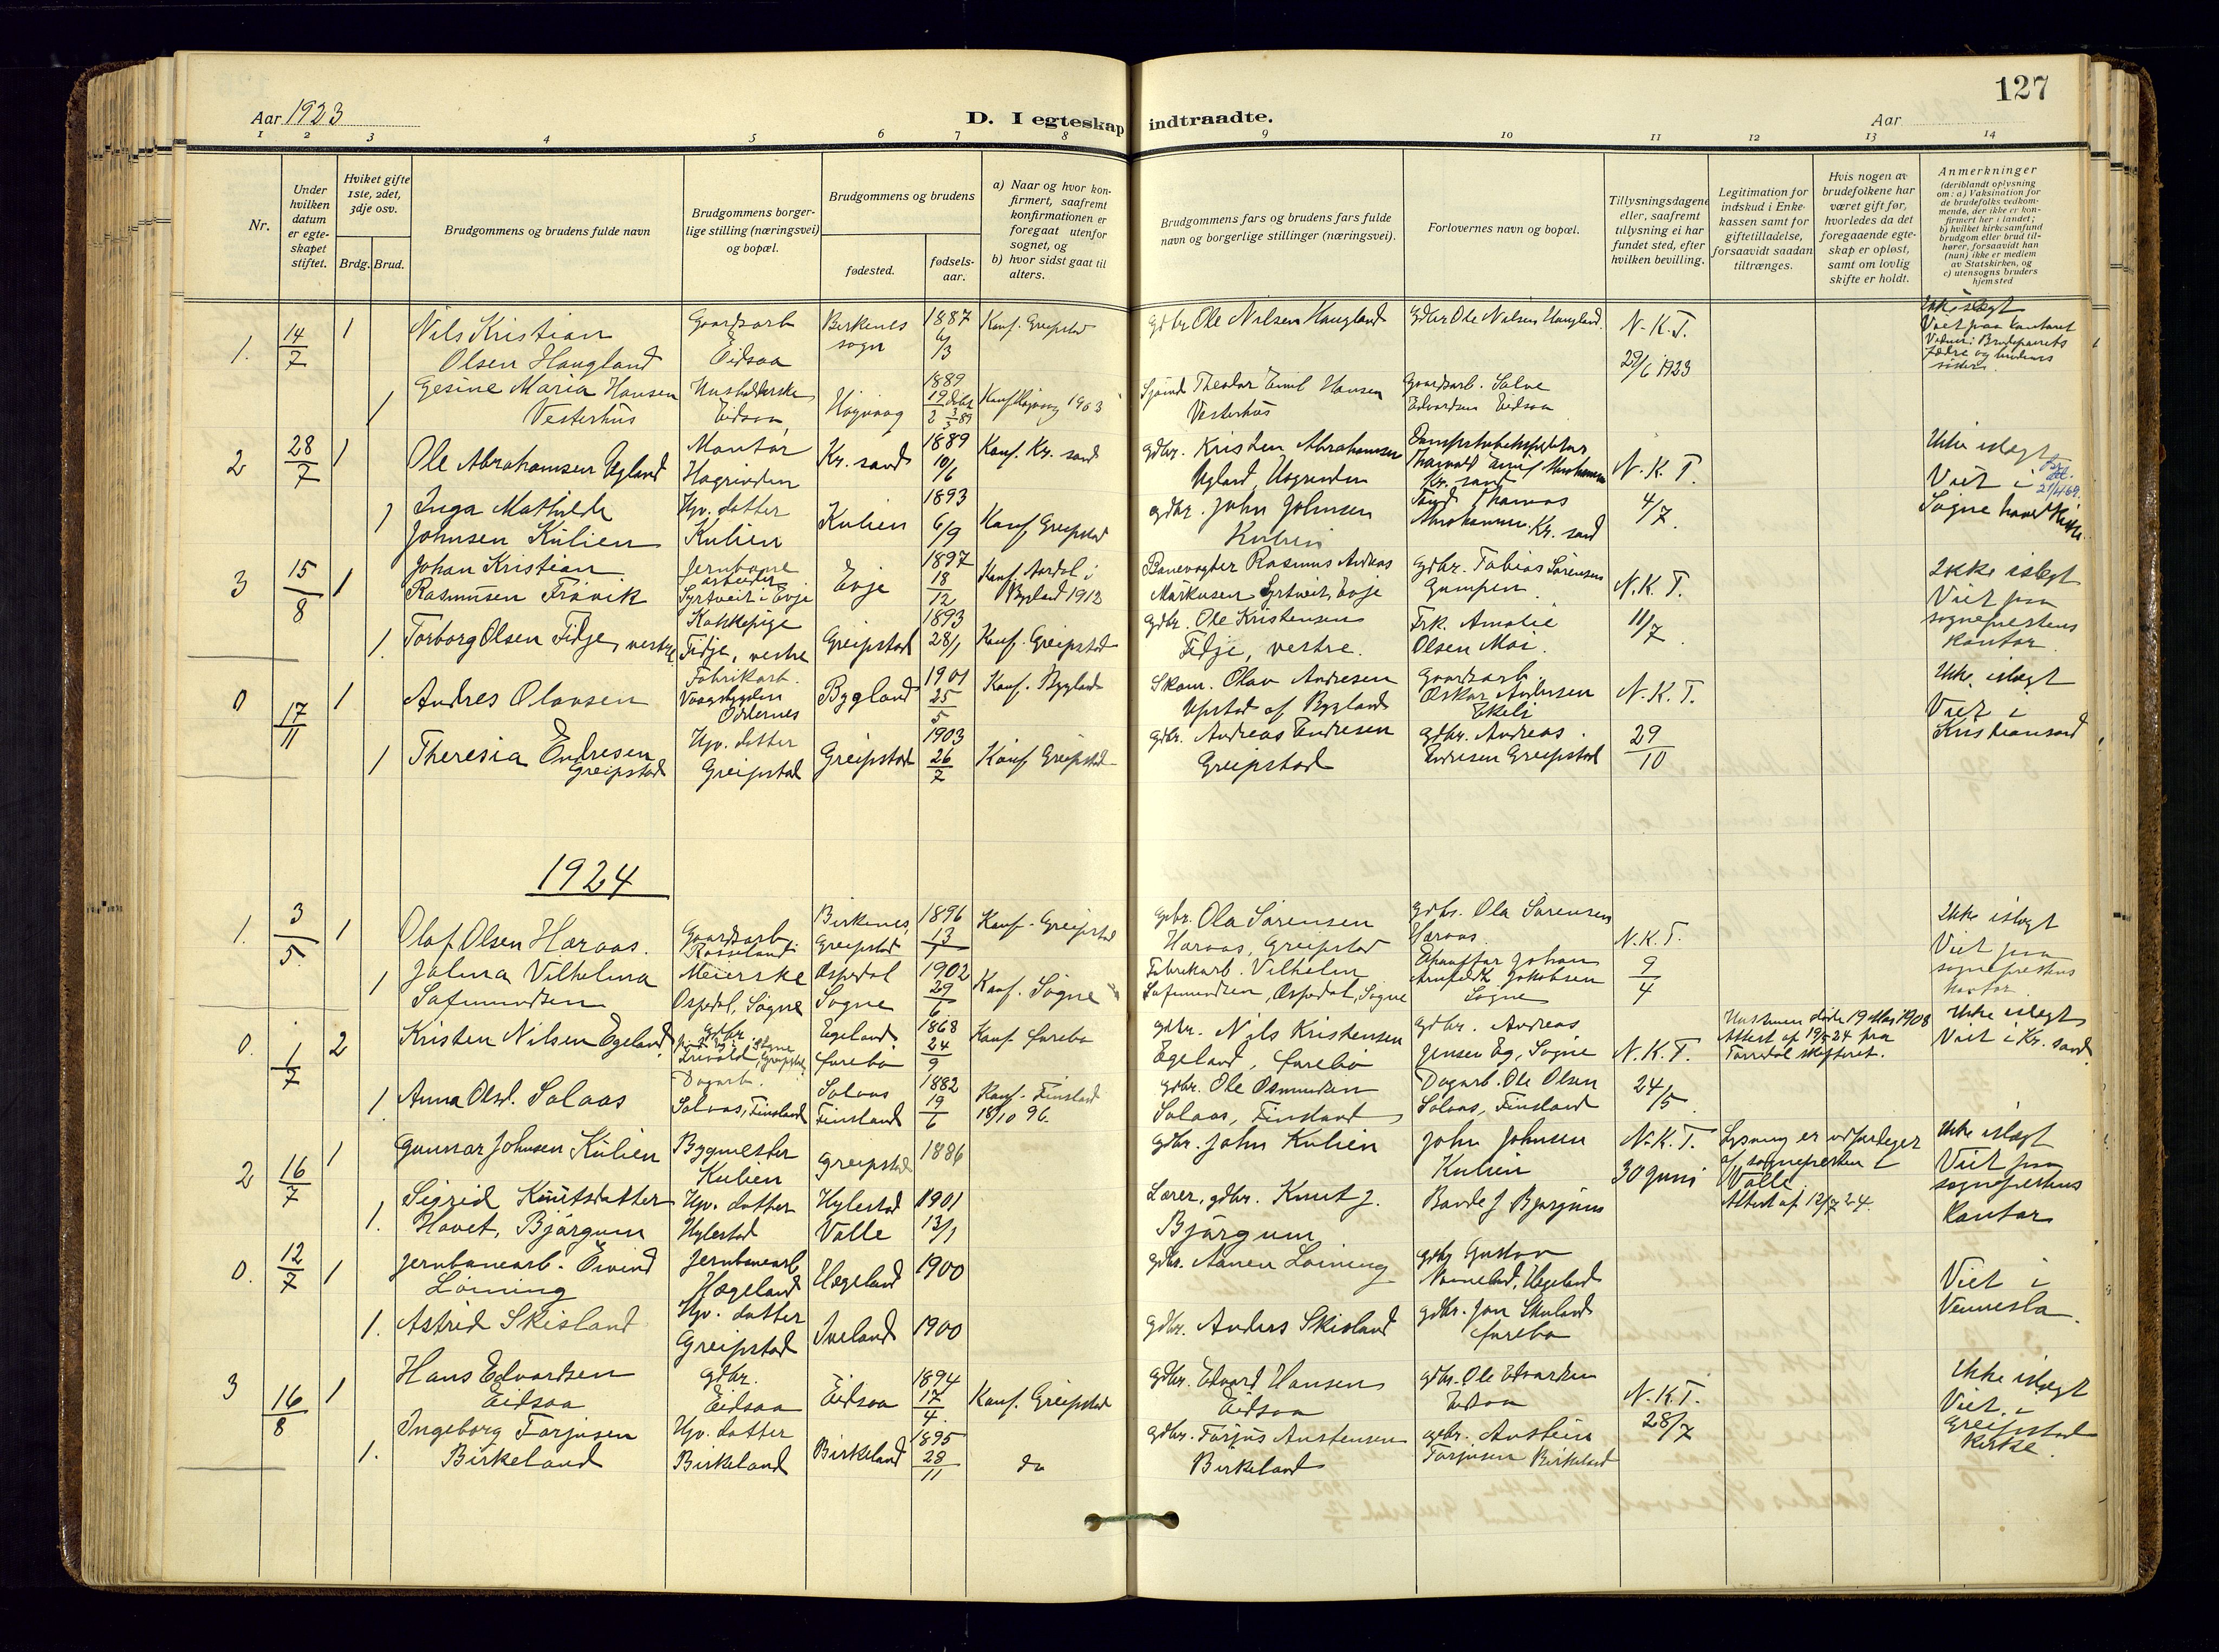 127
Aar 1923
D. I egteskap indtraadte.
Aar
1 2 3 4 5 6 7 8 9 10 11 12 13 14
Nr.
Under hvilken datum er egteskapet stiftet.
Hviket gifte 1ste, 2det, 3dje osv.
Brdg. Brud.
Brudgommens og brudens fulde navn
Brudgommens borgerlige stilling (næringsvei) og bopæl.
Brudgommens og brudens
fødested.
fødselsaar.
a) Naar og hvor konfirmert, saafremt konfirmationen er foregaat utenfor sognet, og
b) hvor sidst gaat til alters.
Brudgommens fars og brudens fars fulde navn og borgerlige stillinger (næringsvei).
Forlovernes navn og bopæl.
Tillysningsdagene eller, saafremt tillysning ei har fundet sted, efter hvilken bevilling.
Legitimation for indskud i Enkekassen samt for giftetilladelse, forsaavidt saadan tiltrænges.
Hvis nogen av brudefolkene har været gift før, hvorledes da det foregaaende egteskap er opløst, samt om lovlig skifte er holdt.
Anmerkninger
(deriblandt oplysning om: a) Vaksination for de brudefolks vedkommende, der ikke er konfirmert her i landet; b) hvilket kirkesamfund brudgom eller brud tilhører, forsaavidt han (hun) ikke er medlem av Statskirken, og c) utensogns bruders hjemsted
1. 14/7 1 Nils Kristian Olsen Haugland Gaardsarb Eidsaa Birkenes sogn 1887 6/3 Konf. Greipstad gdbr Ole Nilsen Haugland gdbr Ole Nilsen Haugland. N.K.T. 29/6 1923 Ikke slegt Viet paa kontoret
1 Gesine Maria Hansen Vesterhus Husholderske Eidsaa Høgvaag 1889 Konf Høgvaag 1903 Theodor Emil Hansen Vesterhus Gaardsarb. Salve Edvardsen Eidsaa
2 28/7 1 Ole Abrahamsen Ugland Montør Kr. sand 1889 10/6 Konf. Kr. sand gdbr. Kristen Abrahamsen Ugland Kr. sand N.K.T. 4/7 Ikke slegt Viet i Søgne hoved Kirke
21/4 69.
1 Inga Mathilde Johnsen Kulien Hjv. datter Kulien Kulien 1893 6/9 Konf Greipstad gdbr. John Johnsen Kulien Thomas Abrahamsen Kr. sand
3 15/8 1 Johan Kristian Rasmusen Frövik Jernbane arbeider Syrtveit i Evje Evje 1897 18/12 Konf. Aardal i Bygland 1912 Banevogter Rasmus Andreas Markusen Syrtveit, Evje gdbr. Tobias Sørensen Gumpen. N.K.T. 11/7 Ikke i slegt Viet paa sogneprestens kontor.
1. Torborg Olsen Fidje, vestre Kokkepige Fidje, vestre Greipstad 1893 28/1 Konf. Greipstad gdbr. Ole Kristensen Fidje, vestre. Frk. Amalie Olsen Moi.
0 17/11 1 Andres Olavsen Fabrikarb. Vaagsbygden Oddernes Bygland 1901 25/5 Konf. Bygland Olav Andresen Upstad af Bygland Gaardsarb. Oskar Andersen Ekeli N.K.T. 29/10 Ikke i slegt Viet i Kristiansand
1 Theresia Endresen Greipstad Hjv. datter Greipstad Greipstad 1903 26/7 Konf Greipstad gdbr. Andreas Endresen Greipstad gdbr. Andreas Endresen Greipstad
1924
1. 3/5 1 Olaf Olsen Haraas. Gaardsarb Rosseland Birkenes, Greipstad 1896 13/7 Konf. Greipstad gbr. Ola Sørensen Haraas, Greipstad gdbr. Ola Sørensen Haraas. N.K.T. 9/4 Ikke i slegt Viet paa sogneprestens kontor.
1 Jalma Vilhelma Safmundsen Meierske Ospedal, Søgne Ospedal Søgne 1902 29/6 Konf. Søgne Fabrikarb. Vilhelm Safmundsen, Ospedal, Søgne Johan Jakobsen Søgne
0. 1/7 2 Kristen Nilsen Egeland gdbr Egeland Øvrebø 1868 24/9 Konf Øvrebø gdbr. Nils Kristensen Egeland, Øvrebø gdbr. Andreas Jensen Eg, Søgne N.K.T. 24/5. Hustruen døde 19 Mai 1908 Attest af 19/5 24 fra Torridal skifteret. Ikke i slegt Viet i Kr. sand
1. Anna Olsd. Solaas Dagarb. Solaas, Finsland Solaas Finsland 1882 19/6 Konf. Finsland 18/10 96. gdbr. Ole Osmundsen Solaas, Finsland Dagarb. Ole Olsen Solaas, Finsland
2 16/7 1 Gunnar Johnsen Kulien Bygmester Kulien Greipstad 1886 gdbr. John Kulien John Johnsen Kulien N.K.T. 30 juni Lysning er udfærdiget af sognepresten i Valle Attest af 12/7 24. Ikke i slegt Viet paa sogneprestens kontor
1. Sigrid Knutsdatter Hovet, Bjørgum Hjv. datter Hylestad Hylestad Valle 1901 13/1 Lærer, gdbr. Knut J. Bjørgum Baarde J Bjørgum
0. 12/7 1 Jernbanearb. Eivind Løining Jernbanearb Hægeland Hægeland 1900 gdbr. Aanen Løining gdbr Gustav Hægeland Viet i Vennesla.
1. Astrid Skisland Hjv. datter Greipstad Iveland 1900 gdbr. Anders Skisland gdbr. Jon Skisland Øvrebø
3 16/8 1 Hans Edvardsen Eidsaa gdbr. Eidsaa Eidsaa 1894 17/4 Konf. Greipstad gdbr. Edvard Hansen Eidsaa gdbr. Ole Edvardsen Eidsaa N.K.T. 28/7 Ikke i slegt Viet i Greipstad kirke.
1. Ingeborg Torjusen Birkeland Hjv. datter Birkeland Birkeland 1895 28/11 do gdbr. Torjus Austensen Birkeland gdbr. Austein Torjusen Birkeland